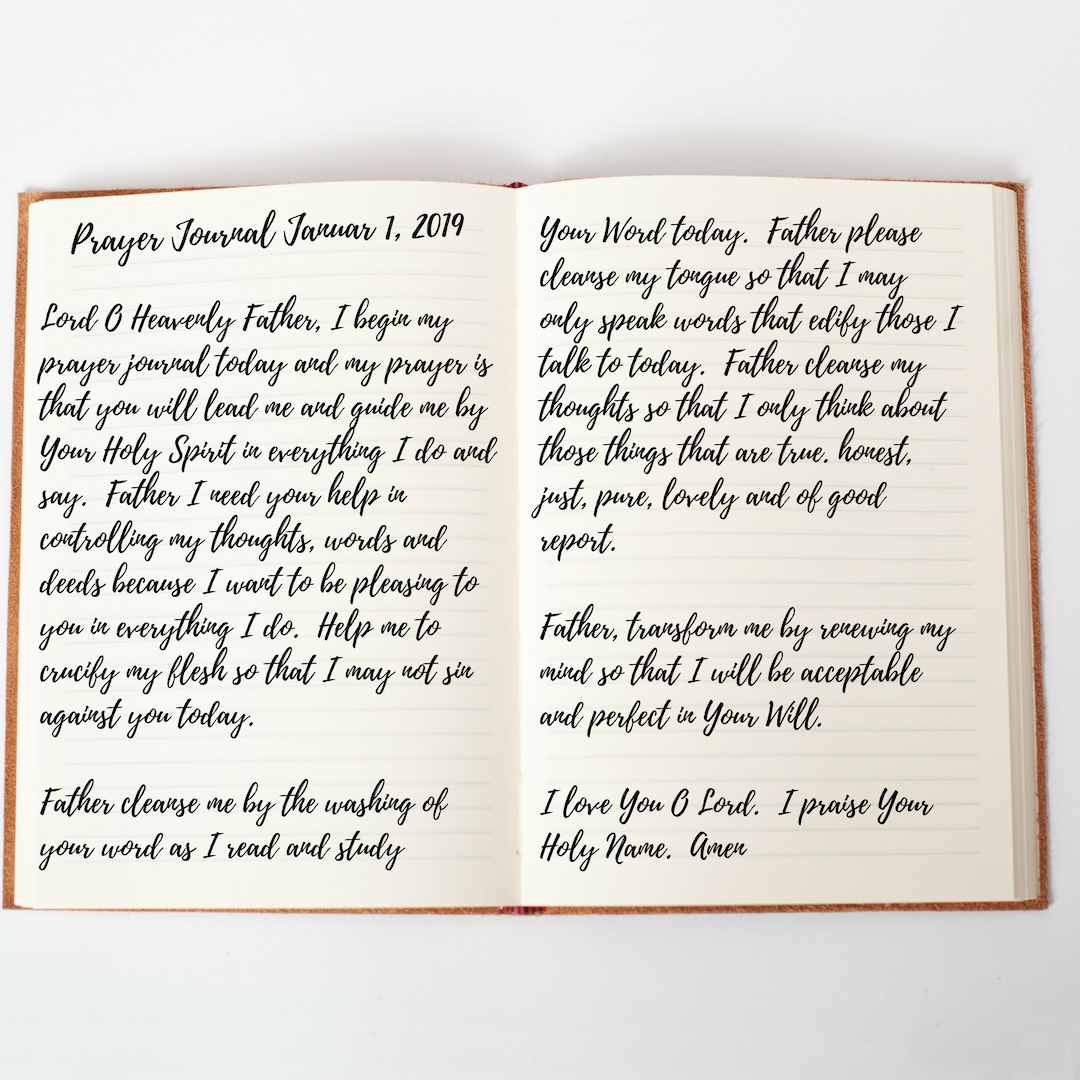 Prayer Journal Januar 1, 2019
Lord O Heavenly Father, I begin my
prayer journal today and my prayer is
that you will lead me and guide me by
Your Holy Spirit in everything I do and
say. Father I need your help in
controlling my thoughts, words and
deeds because I want to be pleasing to
you in everything I do. Help me to
crucify my flesh so that I may not sin
against you today.
Father cleanse me by the washing of
your word as I read and study
Your Word today. Father please
cleanse my tongue so that I may
only speak words that edify those I
talk to today. Father cleanse my
thoughts so that I only think about
those things that are true. honest,
just, pure, lovely and of good
report.
Father, transform me by renewing my
mind so that I will be acceptable
and perfect in Your Will.
I love You O Lord. I praise Your
Holy Name. Amen